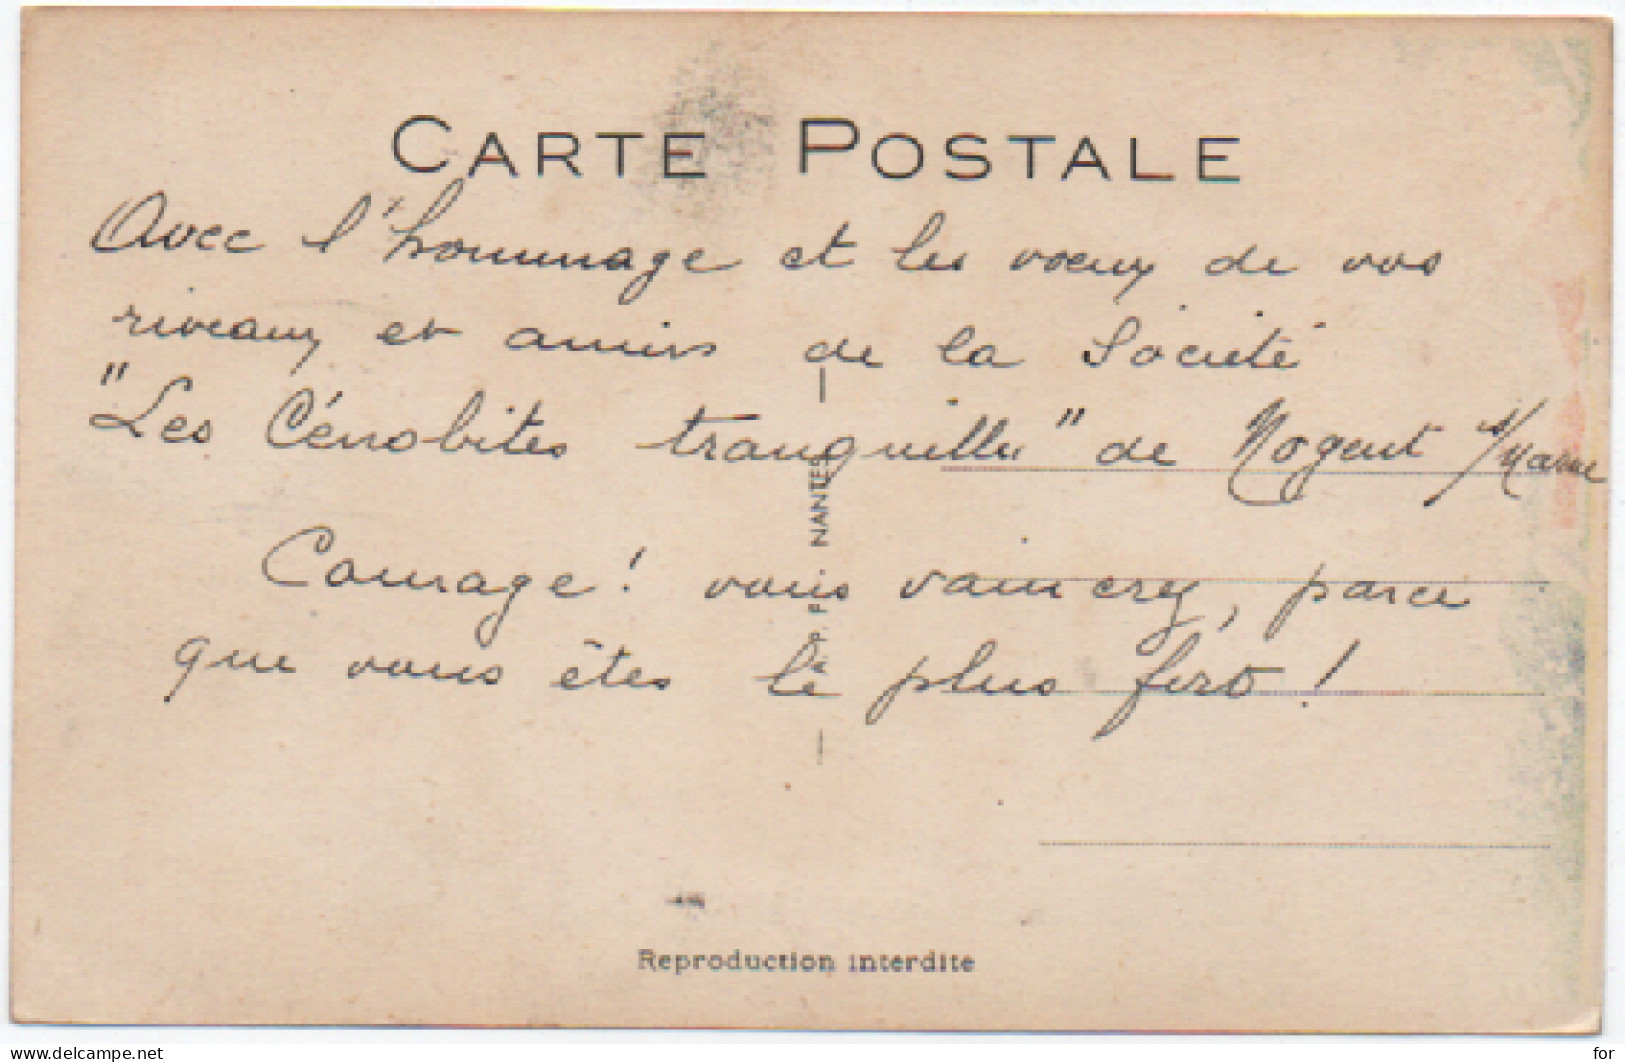 CARTE POSTALE
Avec l'hommage et les vœux de vos
riveaux et amis de la Société
"Les Cénobites tranquilles" de Nogent s/Marne
Courage! vous vaincrez, parce
que vous êtes le plus fort!
NANTES
Reproduction interdite
www.delcampe.net
for